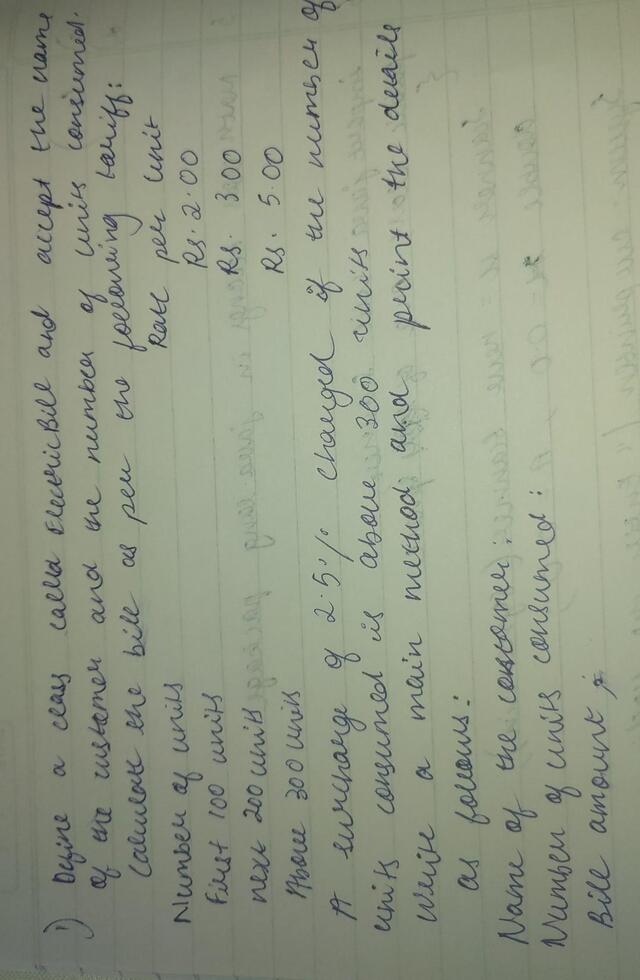 1) Define a class called ElectricBill and accept the name
of the customer and the number of units consumed.
Calculate the bill as per the following tariff:
Number of units Rate per unit
First 100 units Rs. 2.00
next 200 units Rs. 3.00
Above 300 units Rs. 5.00
A surcharge of 2.5% charged if the number of
units consumed is above 300 units
Write a main method and print the details
as follows:
Name of the customer:
Number of units consumed:
Bill amount: